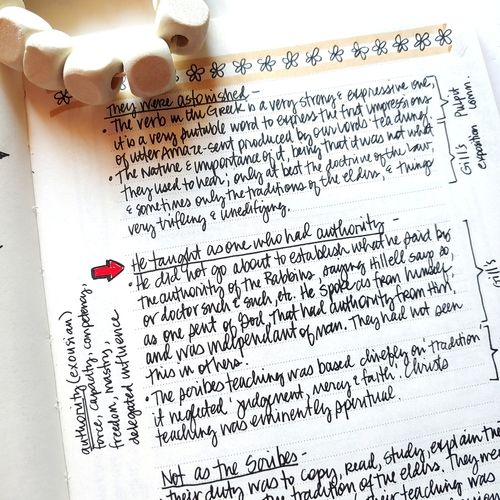 They were astonished -
• The verb in the Greek is a very strong & expressive one,
it is a very suitable word to express the first impressions
of utter amaze-ment produced by our Lord's teaching.
• The nature & importance of it, being that it was not what
they used to hear; only at best the doctrine of the law,
& sometimes only the traditions of the elders, & things
very trifling & unedifying.
Pulpit
Comm.
Gill's
exposition
He taught as one who had authority -
• He did not go about to establish what he said by
the authority of the Rabbins, saying Hillell says so,
or doctor such & such, etc. He spoke as from himself,
as one sent of God, that had authority from Him,
and was independant of man. They had not seen
this in others.
• The scribes teaching was based chiefly on 'tradition
it neglected 'judgment, mercy & faith.' Christs
teaching was eminently spiritual.
Gill's
authority (exousian)
force, capacity, competency,
freedom, mastry,
delegated influence
Not as the Scribes -
their duty was to copy, read, study, explain the
tradition of the elders. They were
teaching was